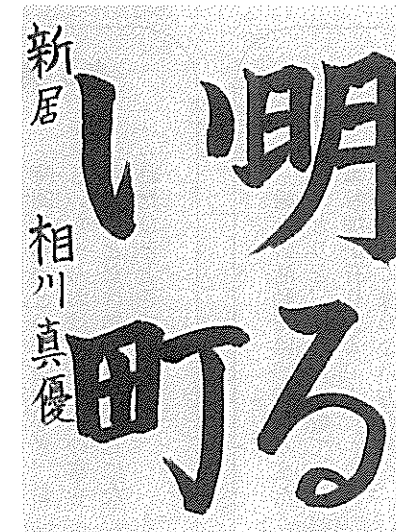 明る
い町
新居 相川真優